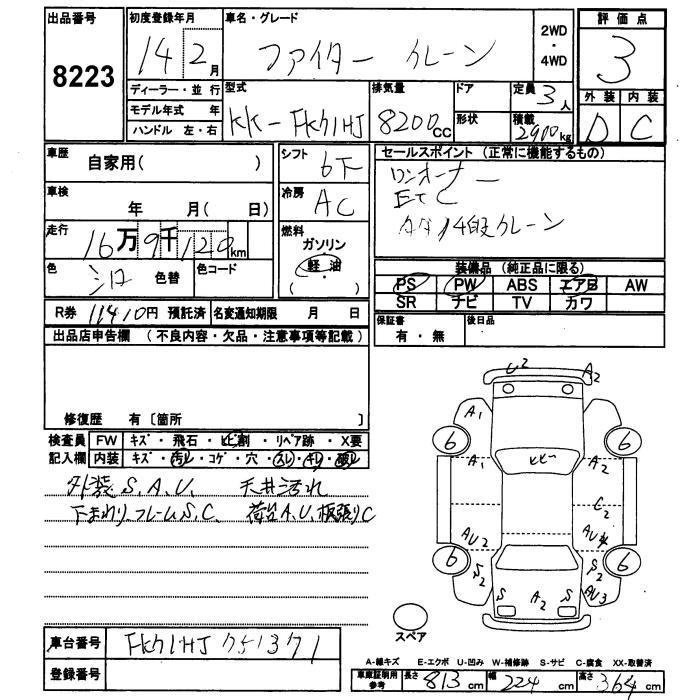 出品番号 初度登録年月 車名・グレード 2WD ・ 4WD 評価点
8223 14 2月 ファイター クレーン 3
ディーラー・並行 型式 排気量 ドア 定員 3人 外装 内装
モデル年式 年 KK-FK71HJ 8200cc 形状 積載 2900kg D C
ハンドル 左・右
車歴 自家用( ) シフト 6下 セールスポイント (正常に機能するもの)
車検 年 月( 日) 冷房 AC ワンオーナー
ETC
走行 16万9千120km 燃料 ガソリン ・ 軽油 ( ) 4段クレーン
色 シロ 色替 色コード 装備品 (純正品に限る)
PS PW ABS エアB AW
SR ナビ TV カワ
R券 11410円 預託済 名変通知期限 月 日 保証書 有・無 後日品
出品店申告欄 (不良内容・欠品・注意事項等記載)
修復歴 有〔箇所 〕
検査員 FW キズ・飛石・ヒビ割・リペア跡・X要
記入欄 内装 キズ・汚レ・コゲ・穴・スレ・キレ・破レ
外装S.A.U. 天井汚れ
下まわり.フレームS.C. 荷台A.U.板張りC
U2 A2
A1
6 ヒビー 6
A1 A2
C2
AU2 AU4
6 6
S2 S2
S A2 S AU3
スペア
車台番号 FK71HJ 751371
登録番号
A-線キズ E-エクボ U-凹み W-補修跡 S-サビ C-腐食 XX-取替済
車庫証明用参考 長さ 813cm 幅 224cm 高さ 364cm